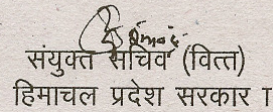 संयुक्त सचिव (वित्त)
हिमाचल प्रदेश सरकार